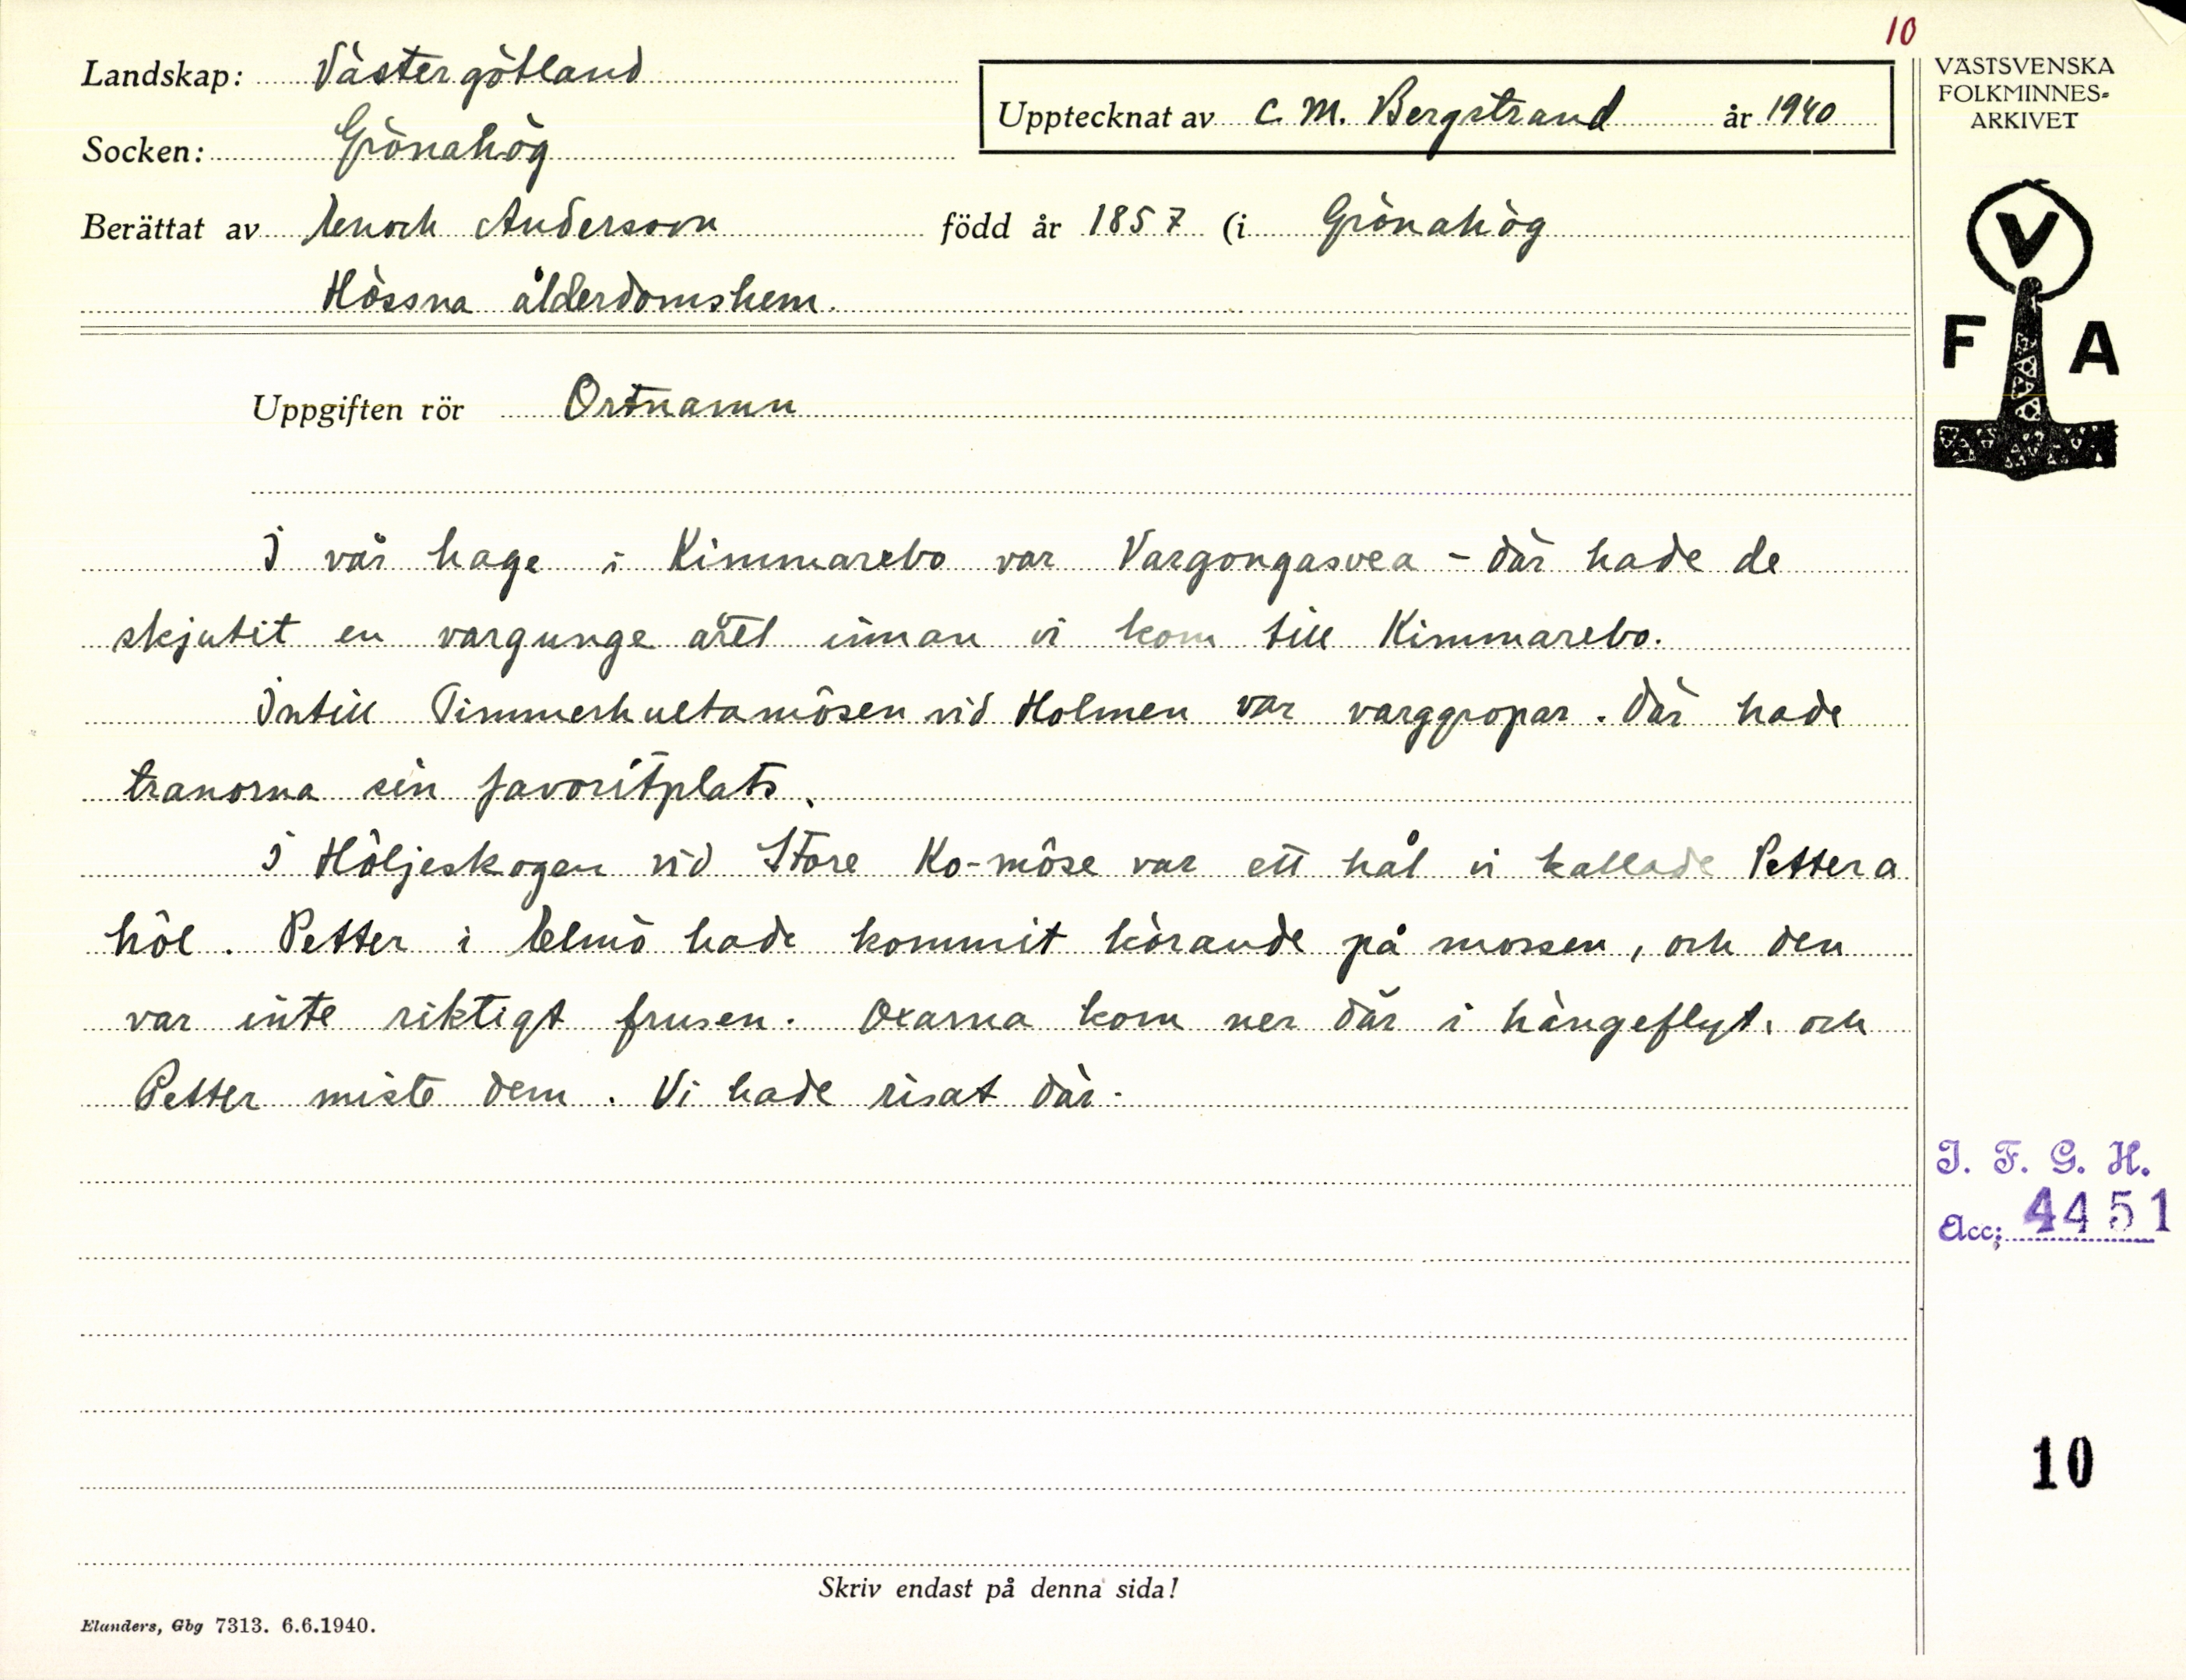 10
Landskap: Västergötland
Upptecknat av C. M. Bergstrand år 1940
Socken: Grönahög
Berättat av Enoch Andersson född år 1857 (i Grönahög
Hössna ålderdomshem.
VÄSTSVENSKA
FOLKMINNES-
ARKIVET
V
F A
Uppgiften rör Ortnamn
I vår hage i Kimmarebo var Vargongasvea - där hade de
skjutit en vargunge året innan vi kom till Kimmarebo.
Intill Timmerhultamôsen vid Holmen var varggropar. Där hade
tranorna sin favoritplats.
I Höljeskogen vid Store Ko-môse var ett hål vi kallade Pettera
hôl. Petter i Elmö hade kommit körande på mossen, och den
var inte riktigt frusen. Oxarna kom ner där i hängeflyt, och
Petter miste dem. Vi hade risat där.
I. F. G. H.
Acc; 4451
10
Skriv endast på denna sida!
Elanders, Gbg 7313. 6.6.1940.